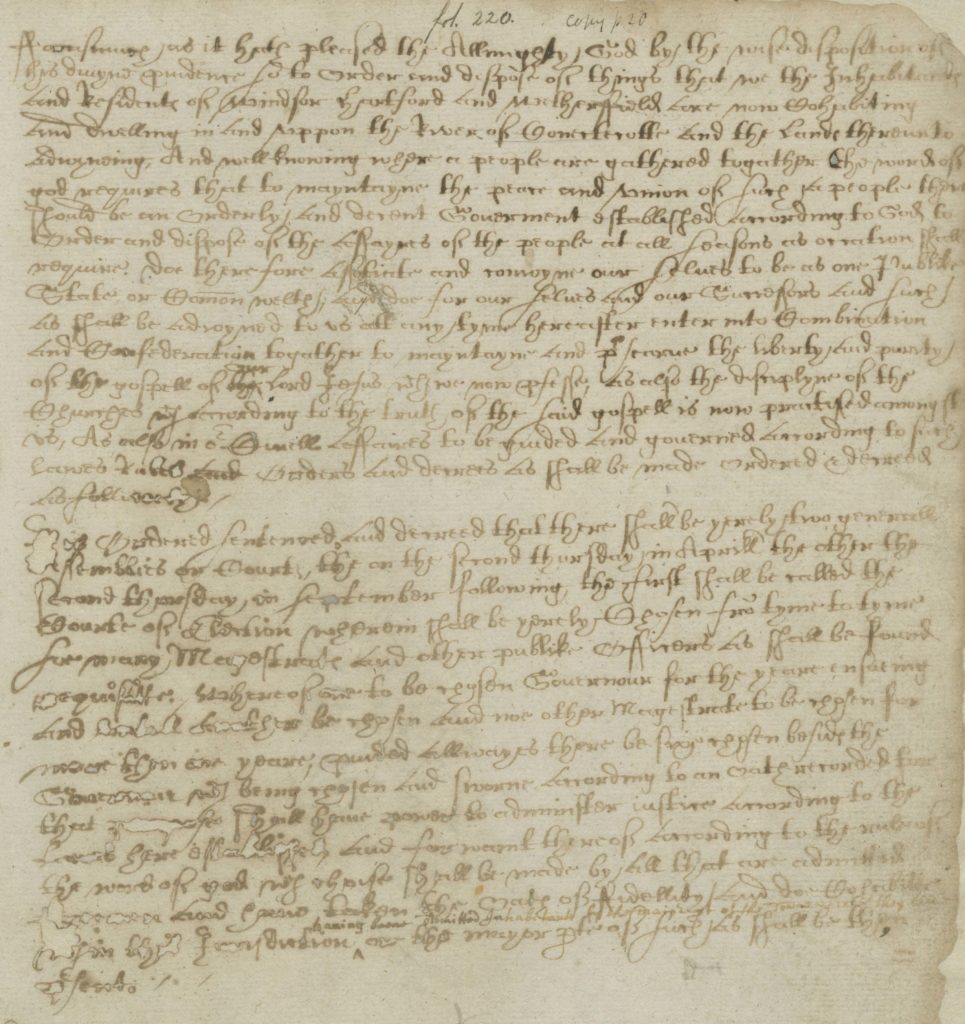 fol. 220. copy p 20
Forasmuch as it hath pleased the Allmighty God by the wise disposition of
his divyne pvidence so to Order and dispose of things that we the Inhabitants
and Residents of Windsor Harteford and Wethersfield are now Cohabiting
and dwelling in and uppon the River of Conectecotte and the Lands thereunto
adioyneing, And well knowing where a people are gathered togather the word of
god requires that to mayntayne the peace and union of such a people there
should be an orderly and decent Goverment established according to God, to
Order and dispose of the affayres of the people at all seasons as occation shall
require; doe therefore assotiate and conioyne our selves to be as one Publike
State or Comon welth; and doe for our selves and our Successors and such
as shall be adioyned to us att any tyme hereafter enter into Combination
and Confederation togather to mayntayne and psearve the liberty and purity
of the gospell of our Lord Jesus wch we now pfesse, as also the disciplyne of the
Churches wch according to the truth of the said gospell is now practised amongst
us, As also in or Civell Affaires to be guided and governed according to such
Lawes Rules Orders and decrees as shall be made ordered & decreed
as followeth
Ordered sentenced and decreed that there shall be yerely two generall
Assemblies or Courts, the on the second thursday in Aprill, the other the
second thursday in September following, the first shall be called the
Courte of Election wherein shall be yerely Chosen fro tyme to tyme
soe many Magestrats and other publike Officers as shall be found
requisitte, Whereof one to be chosen Governour for the yeare ensueing
and be chosen and noe other Magestrate to be chosen for
more then one yeare; pvided allwayes there be sixe chosen beside the
Governour wch being chosen and sworne according to an Oath recorded for
that shall have power to administer iustice according to the
Lawes here established and for want thereof according to the rule of
the word of god wch choise shall be made by all that are admitted
freemen and have taken the Oath of Fidellity, and doe Cohabitte
wthin this Jurisdiction, having beene admitted Inhabitants by the maior part of the Towne or the mayor pte of such as shall be then
psent.